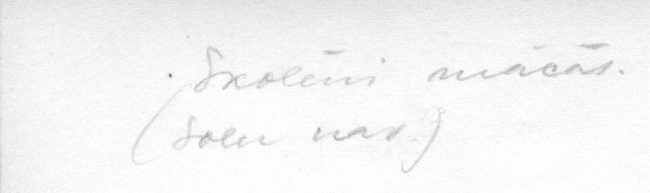 Skolēni mācās.
(Solu nav.)